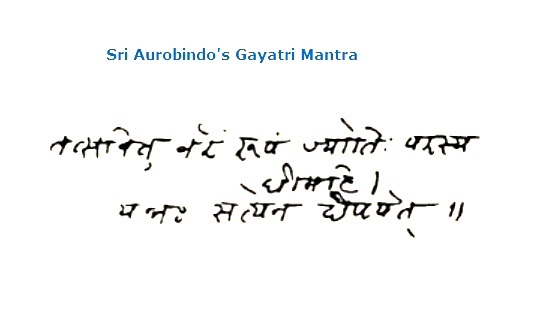 Sri Aurobindo's Gayatri Mantra
तत्सवितु र्वरं रूपं ज्योतिः परस्य
धीमहि ।
यन्नः सत्येन दीपयेत् ॥